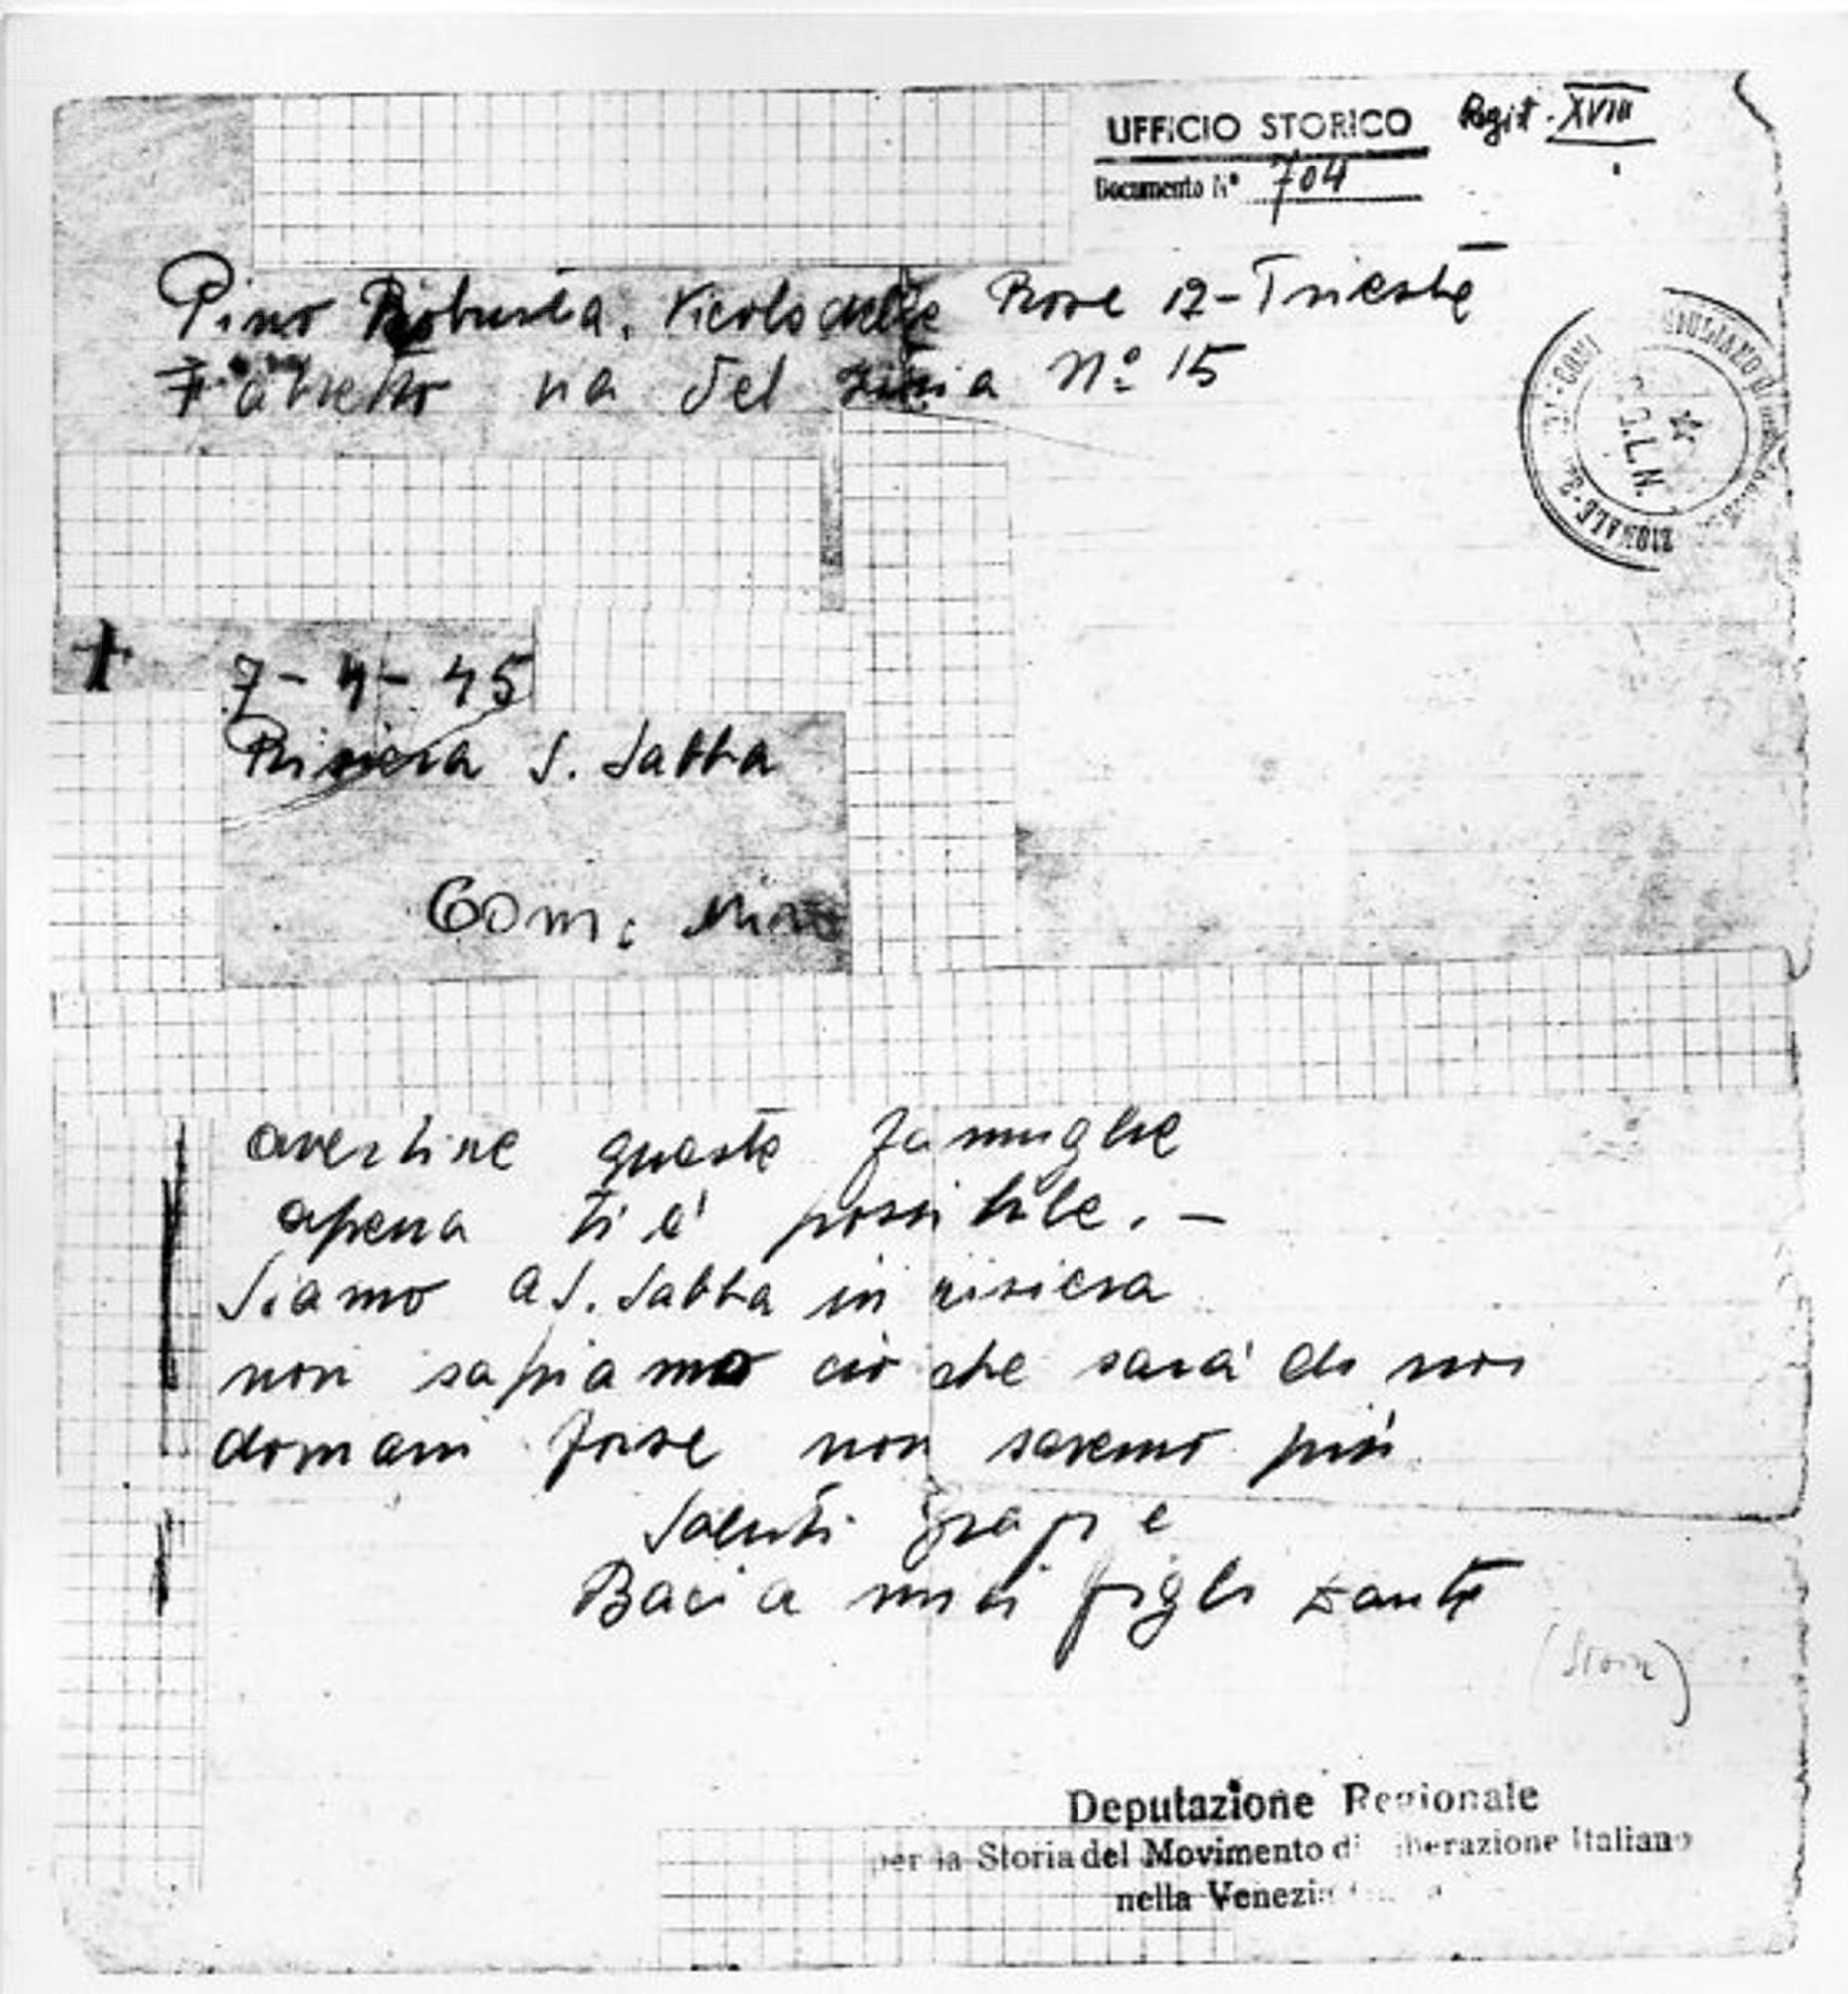 UFFICIO STORICO Regist. XVIII
Documento N° 704
Pino Robusta, Vicolo delle Rose 12 - Trieste
via del Istria N° 15
7-4-45
Risiera S. Sabba
Com:
avertire queste famiglie
apena ti e' possibile. -
Siamo a S. Sabba in risiera
non sapiamo ciò che sarà di noi
domani forse non saremo più
Saluti grazie
Bacia miei figli Dante
C.L.N.
Deputazione Regionale
per la Storia del Movimento di Liberazione Italiano
nella Venezia